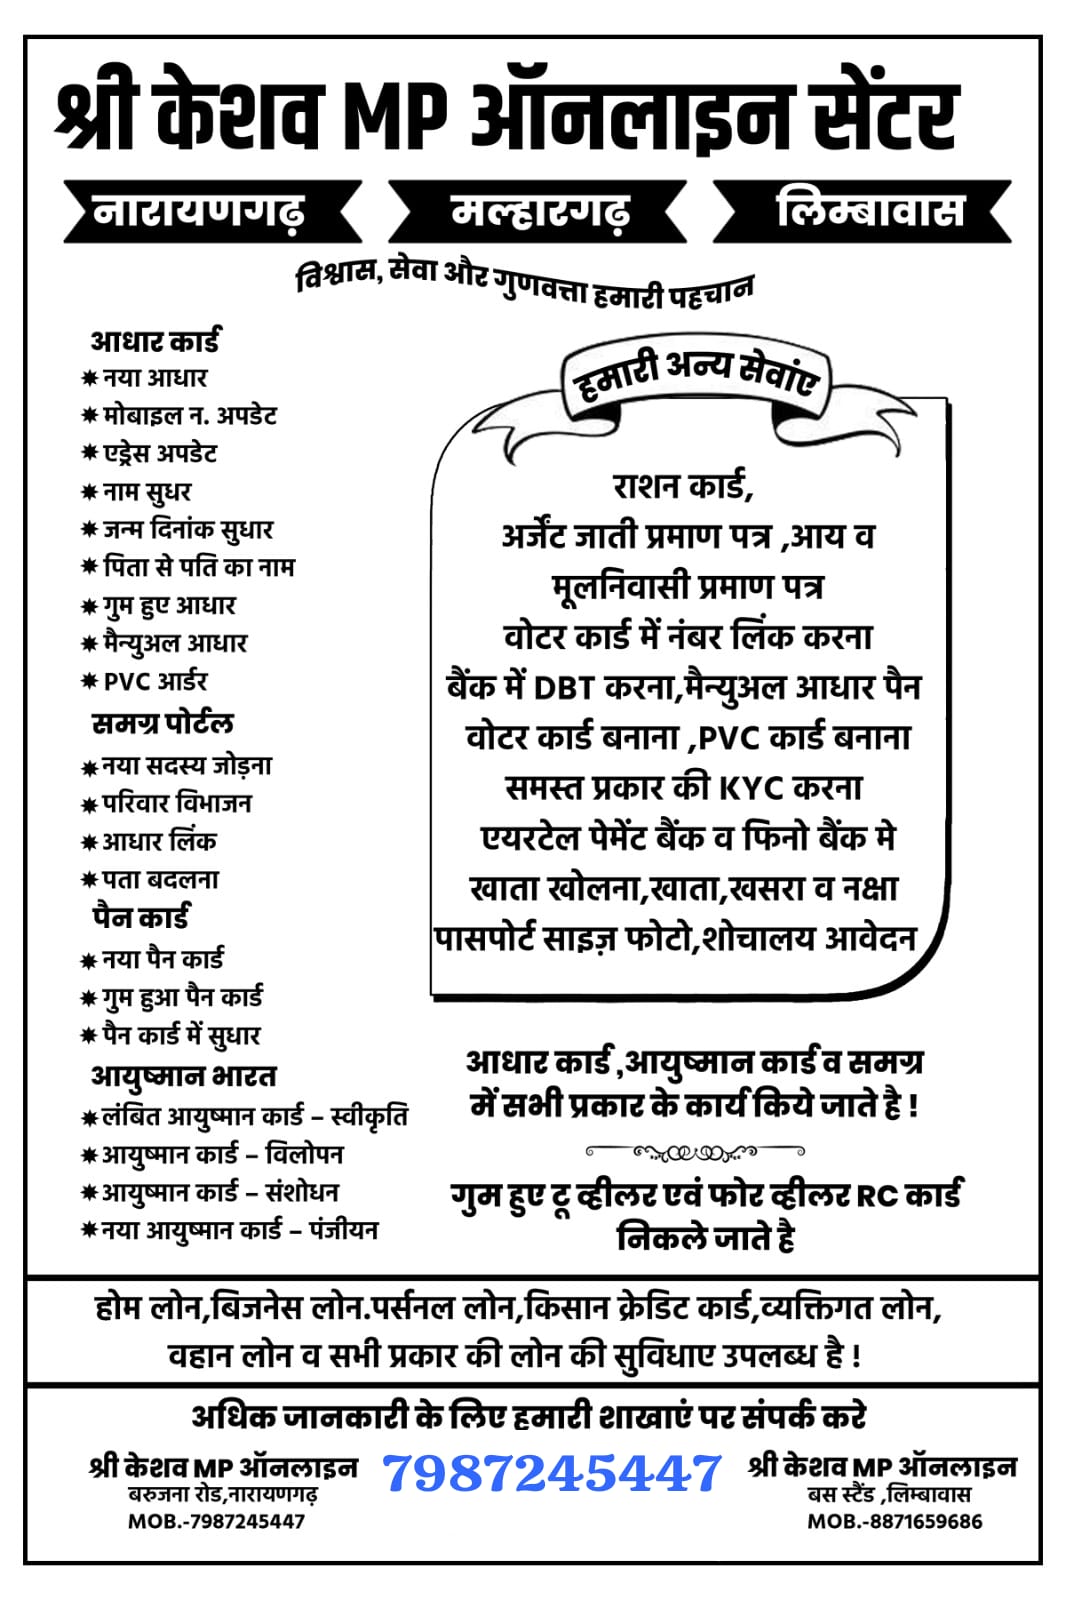 श्री केशव MP ऑनलाइन सेंटर
नारायणगढ़ मल्हारगढ़ लिम्बावास
विश्वास, सेवा और गुणवत्ता हमारी पहचान
आधार कार्ड
✷ नया आधार
✷ मोबाइल न. अपडेट
✷ एड्रेस अपडेट
✷ नाम सुधर
✷ जन्म दिनांक सुधार
✷ पिता से पति का नाम
✷ गुम हुए आधार
✷ मैन्युअल आधार
✷ PVC आर्डर
समग्र पोर्टल
✷ नया सदस्य जोड़ना
✷ परिवार विभाजन
✷ आधार लिंक
✷ पता बदलना
पैन कार्ड
✷ नया पैन कार्ड
✷ गुम हुआ पैन कार्ड
✷ पैन कार्ड में सुधार
आयुष्मान भारत
✷ लंबित आयुष्मान कार्ड – स्वीकृति
✷ आयुष्मान कार्ड – विलोपन
✷ आयुष्मान कार्ड – संशोधन
✷ नया आयुष्मान कार्ड – पंजीयन
हमारी अन्य सेवांए
राशन कार्ड,
अर्जेंट जाती प्रमाण पत्र ,आय व
मूलनिवासी प्रमाण पत्र
वोटर कार्ड में नंबर लिंक करना
बैंक में DBT करना,मैन्युअल आधार पैन
वोटर कार्ड बनाना ,PVC कार्ड बनाना
समस्त प्रकार की KYC करना
एयरटेल पेमेंट बैंक व फिनो बैंक मे
खाता खोलना,खाता,खसरा व नक्षा
पासपोर्ट साइज़ फोटो,शोचालय आवेदन
आधार कार्ड ,आयुष्मान कार्ड व समग्र
में सभी प्रकार के कार्य किये जाते है !
गुम हुए टू व्हीलर एवं फोर व्हीलर RC कार्ड
निकले जाते है
होम लोन,बिजनेस लोन.पर्सनल लोन,किसान क्रेडिट कार्ड,व्यक्तिगत लोन,
वहान लोन व सभी प्रकार की लोन की सुविधाए उपलब्ध है !
अधिक जानकारी के लिए हमारी शाखाएं पर संपर्क करे
श्री केशव MP ऑनलाइन
बरुजना रोड,नारायणगढ़
MOB.-7987245447
7987245447
श्री केशव MP ऑनलाइन
बस स्टैंड ,लिम्बावास
MOB.-8871659686